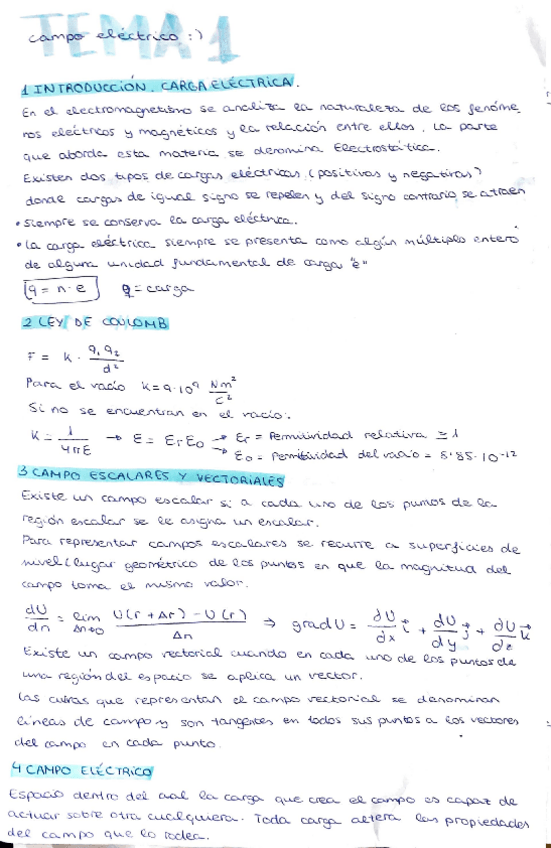 TEMA 1
campo eléctrico :)
1 INTRODUCCIÓN. CARGA ELÉCTRICA.
En el electromagnetismo se analiza la naturaleza de los fenóme
nos eléctricos y magnéticos y la relación entre ellos. La parte
que aborda esta materia se denomina Electrostática.
Existen dos tipos de cargas eléctricas (positivas y negativas)
donde cargas de igual signo se repelen y del signo contrario se atraen
• Siempre se conserva la carga eléctrica.
• La carga eléctrica siempre se presenta como algún múltiplo entero
de alguna unidad fundamental de carga "e"
q = n · e q = carga
2 LEY DE COULOMB
F = K · q₁ q₂ / d²
Para el vacío K = 9 · 10⁹ Nm² / C²
Si no se encuentran en el vacío:
K = 1 / 4πε → ε = εr ε0 → εr = Permitividad relativa ≥ 1
→ ε0 = Permitividad del vacío = 8'85 · 10⁻¹²
3 CAMPO ESCALARES Y VECTORIALES
Existe un campo escalar si a cada uno de los puntos de la
región escalar se le asigna un escalar.
Para representar campos escalares se recurre a superficies de
nivel (lugar geométrico de los puntos en que la magnitud del
campo toma el mismo valor.
dU / dn = lim Δn→0 U(r + Δr) − U(r) / Δn ⇒ grad U = ∂U/∂x i⃗ + ∂U/∂y j⃗ + ∂U/∂z k⃗
Existe un campo vectorial cuando en cada uno de los puntos de
una región del espacio se aplica un vector.
Las curvas que representan el campo vectorial se denominan
líneas de campo y son tangentes en todos sus puntos a los vectores
del campo en cada punto.
4 CAMPO ELÉCTRICO
Espacio dentro del cual la carga que crea el campo es capaz de
actuar sobre otra cualquiera. Toda carga altera las propiedades
del campo que lo rodea.